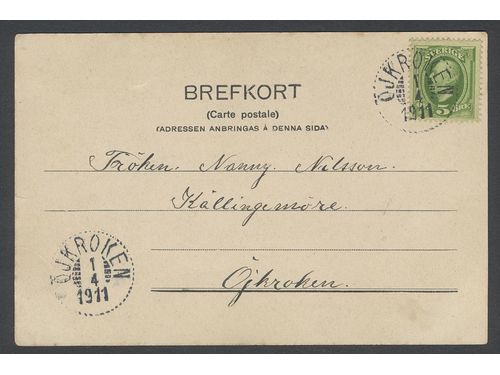 SVERIGE
5 ÖRE
ÖJKROKEN
1
4
1911
BREFKORT
(Carte postale)
(ADRESSEN ANBRINGAS Å DENNA SIDA)
Fröken. Nanny. Nilsson.
Källingemöre.
Öjkroken.
ÖJKROKEN
1
4
1911